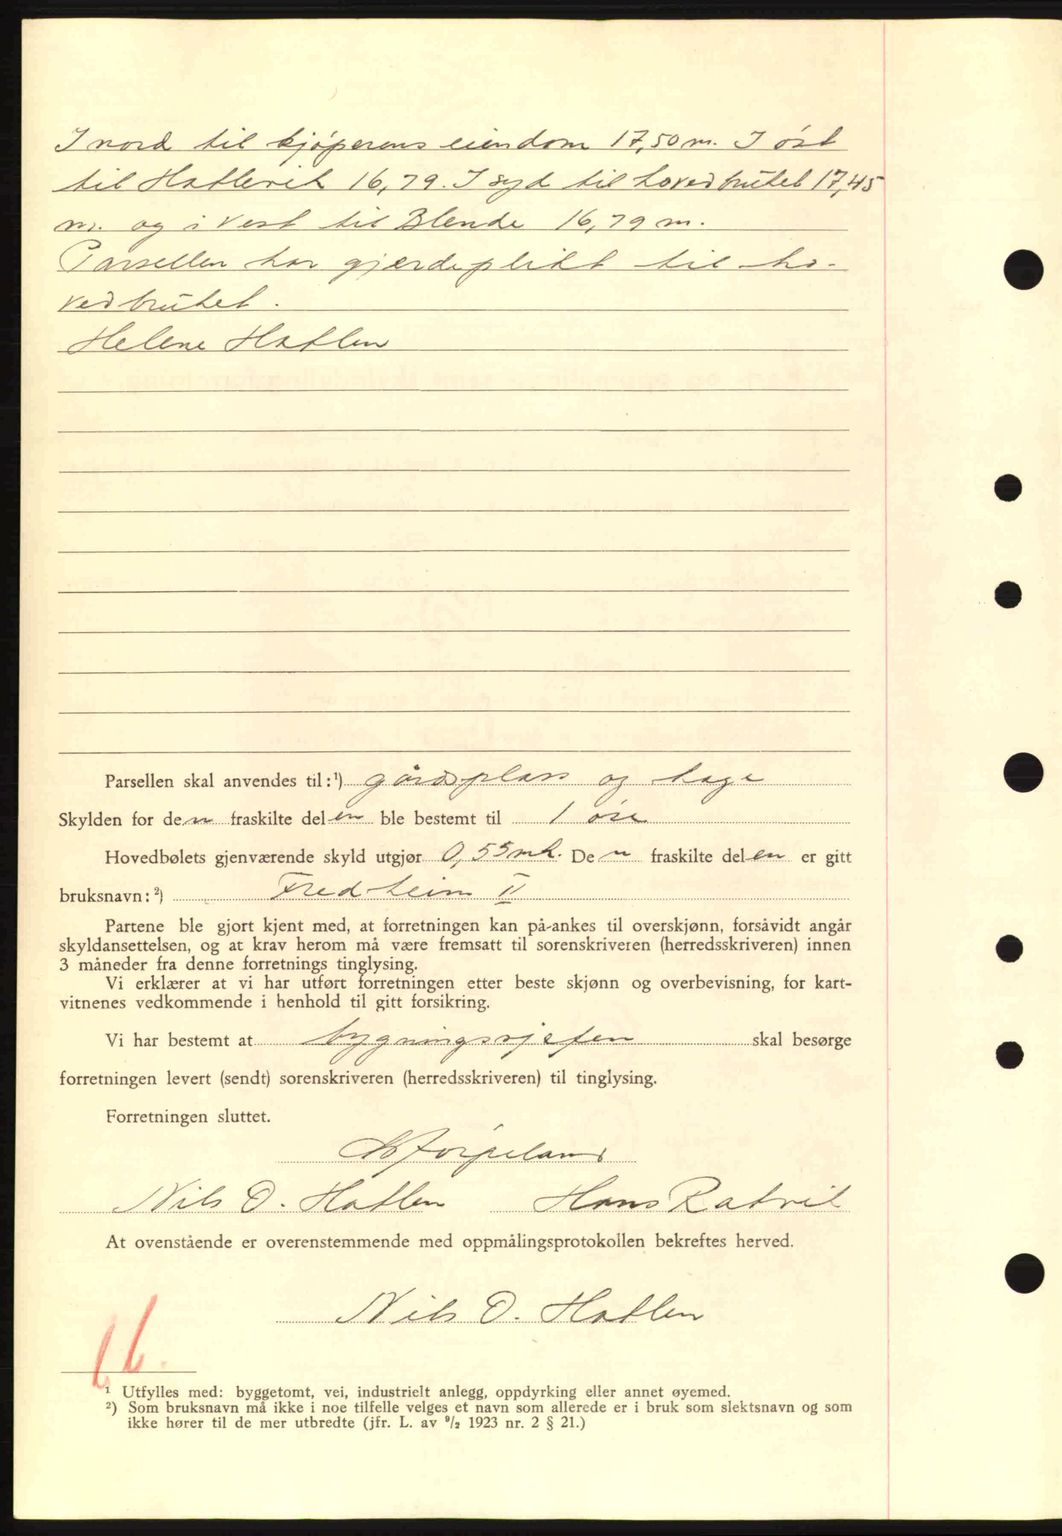 I nord til kjøperens eiendom 17,50 m. I øst
til Hatlevik 16,79. I syd til hovedbruket 17,45
m. og i vest til Blende 16,79 m.
Parsellen har gjerdeplikt til ho-
vedbruket.
Helene Hatlen
Parsellen skal anvendes til:¹) gårdsplass og hage
Skylden for den fraskilte delen ble bestemt til 1 øre
Hovedbølets gjenværende skyld utgjør 0,55 mk. Den fraskilte delen er gitt
bruksnavn:²) Fredheim II
Partene ble gjort kjent med, at forretningen kan på-ankes til overskjønn, forsåvidt angår
skyldansettelsen, og at krav herom må være fremsatt til sorenskriveren (herredsskriveren) innen
3 måneder fra denne forretnings tinglysing.
Vi erklærer at vi har utført forretningen etter beste skjønn og overbevisning, for kart-
vitnenes vedkommende i henhold til gitt forsikring.
Vi har bestemt at bygningssjefen skal besørge
forretningen levert (sendt) sorenskriveren (herredsskriveren) til tinglysing.
Forretningen sluttet.
Nils O. Hatlen Hans Ratvik
At ovenstående er overenstemmende med oppmålingsprotokollen bekreftes herved.
Nils O. Hatlen
¹ Utfylles med: byggetomt, vei, industrielt anlegg, oppdyrking eller annet øyemed.
²) Som bruksnavn må ikke i noe tilfelle velges et navn som allerede er i bruk som slektsnavn og som
ikke hører til de mer utbredte (jfr. L. av 9/2 1923 nr. 2 § 21.)